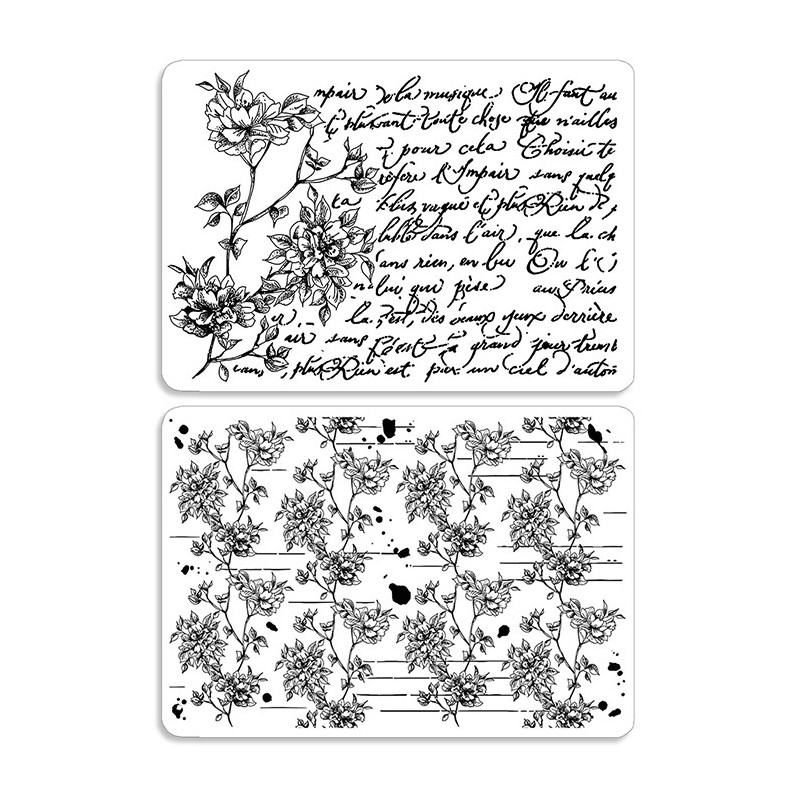 mpair De la musique. Il faut au
plus avant toute chose que n'ailles
pour cela Choisir te
réfère l'Impair sans quelq
ta plus vague et plus Rien de
luble dans l'air, que la ch
sans rien, en lui Ou l'
n lui qui pèse au Précis
la C'est, des beaux yeux derrière
air sans grand jour tremb
plus Rien est par un ciel d'auton